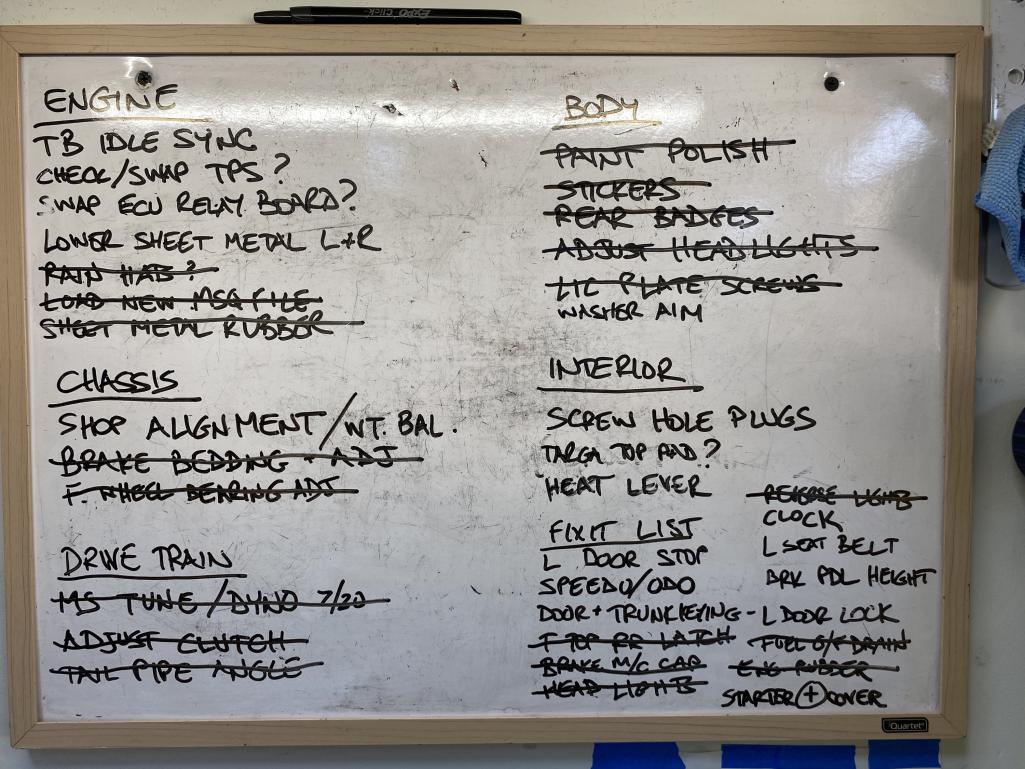 EXPO Click
ENGINE
TB IDLE SYNC
CHECK/SWAP TPS?
SWAP ECU RELAY BOARD?
LOWER SHEET METAL L+R
RAIN HATS?
LOAD NEW MSQ FILE
SHEET METAL RUBBER
CHASSIS
SHOP ALIGNMENT/WT. BAL.
BRAKE BEDDING + ADJ
F. WHEEL BEARING ADJ
DRIVE TRAIN
MS TUNE/DYNO 7/20
ADJUST CLUTCH
TAIL PIPE ANGLE
BODY
PAINT POLISH
STICKERS
REAR BADGES
ADJUST HEADLIGHTS
LIC PLATE SCREWS
WASHER AIM
INTERIOR
SCREW HOLE PLUGS
TARGA TOP PAD?
HEAT LEVER
FIXIT LIST
L DOOR STOP
SPEEDO/ODO
DOOR + TRUNK KEYING - L DOOR LOCK
T TOP RR LATCH
BRAKE M/C CAP
HEAD LIGHTS
REVERSE LIGHTS
CLOCK
L SEAT BELT
BRK PDL HEIGHT
FUEL O/F DRAIN
ENG RUBBER
STARTER (+) COVER
Quartet